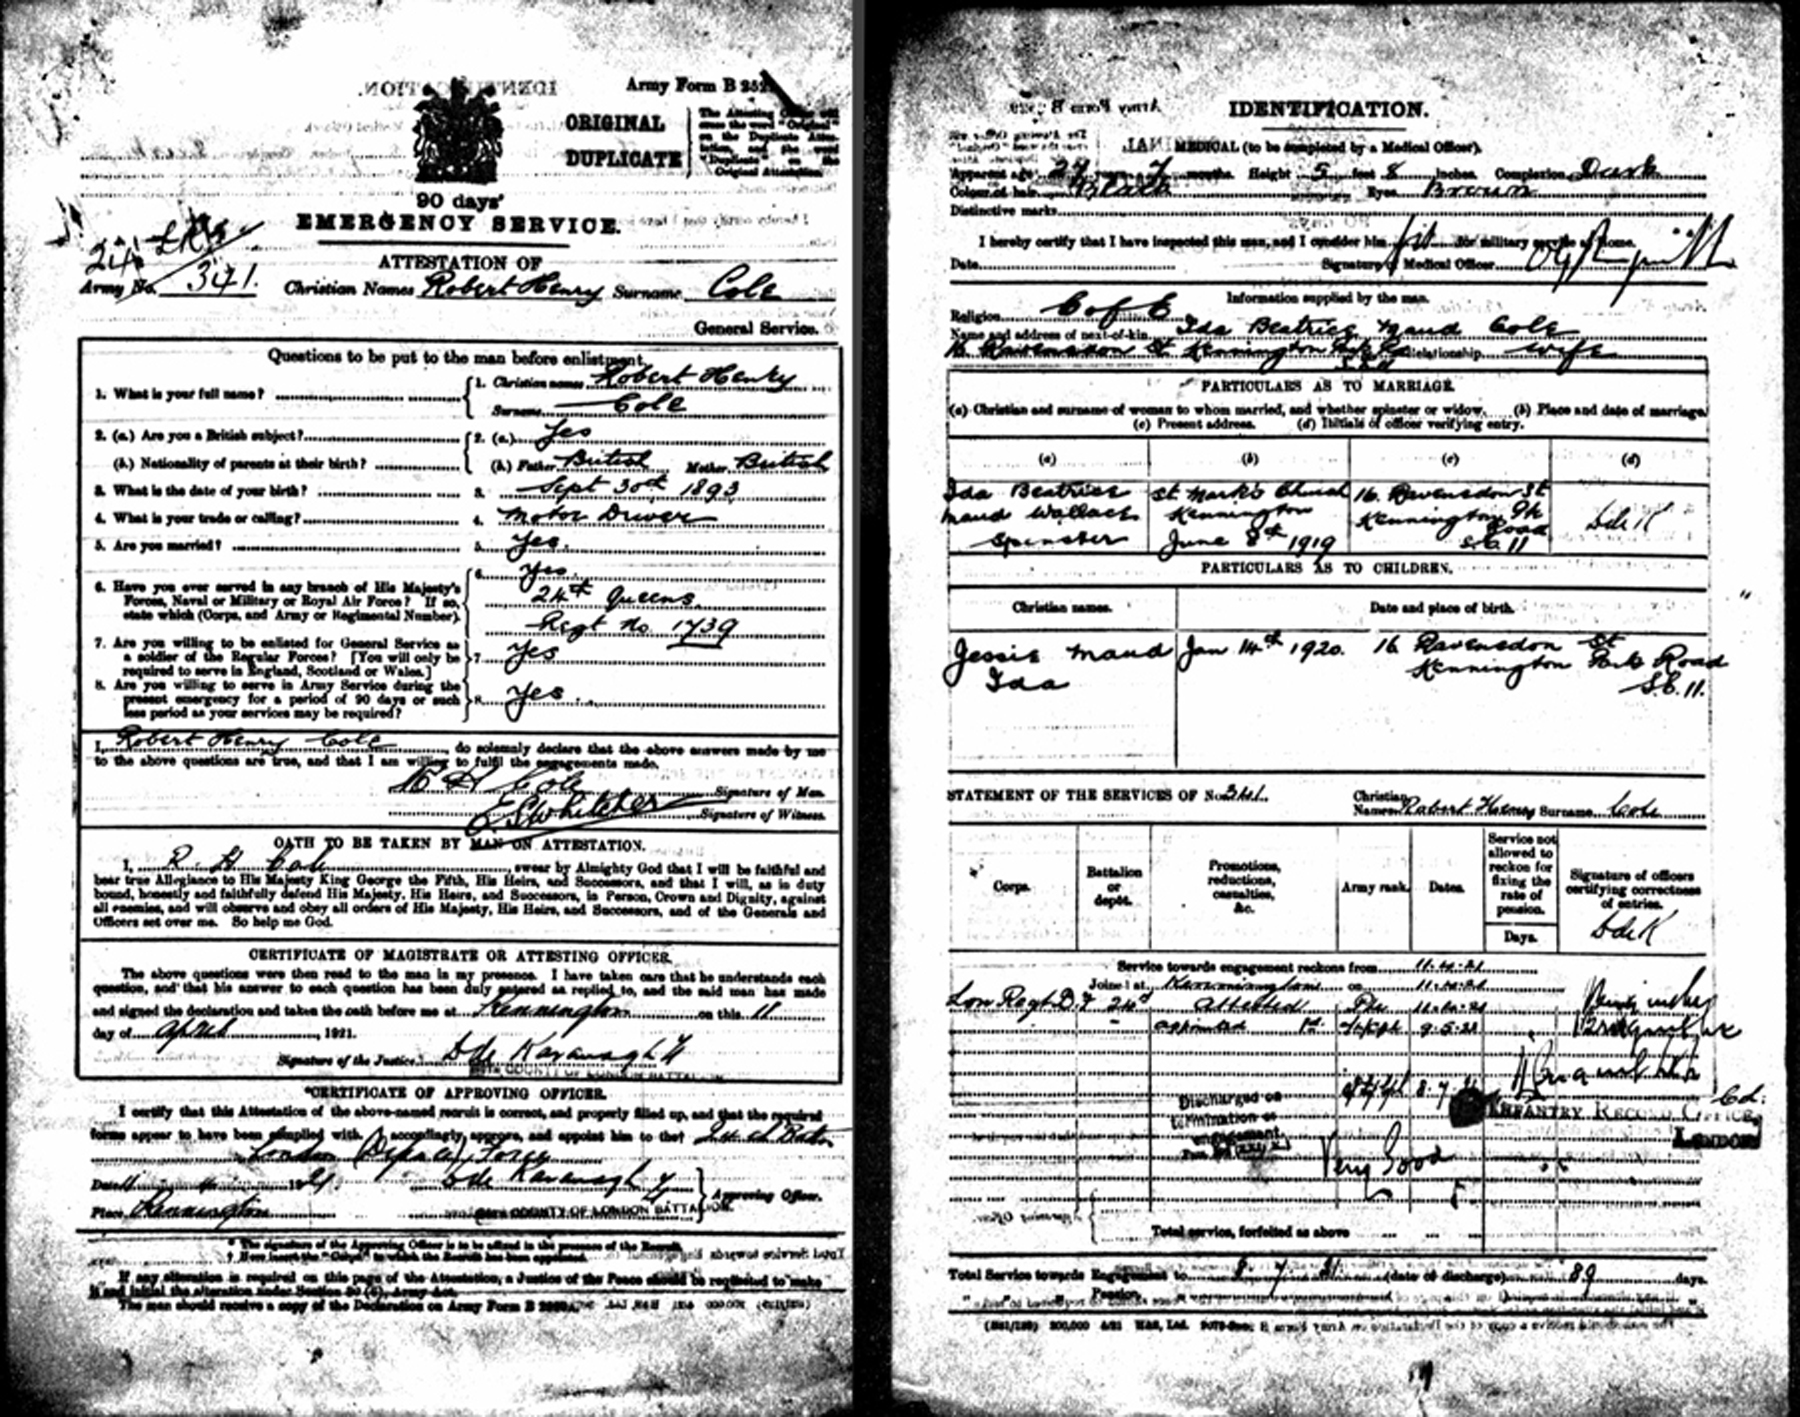 Army Form B 252
ORIGINAL
DUPLICATE
The Attesting Officer will
cross the word "Original"
on the Duplicate Attes-
tation, and the word
"Duplicate" on the
Original Attestation.
90 days'
EMERGENCY SERVICE.
ATTESTATION OF
Army No. 341. Christian Names Robert Henry Surname Cole
General Service.
Questions to be put to the man before enlistment.
1. What is your full name? 1. Christian names Robert Henry
Surname Cole
2. (a.) Are you a British subject? 2. (a.) Yes
(b.) Nationality of parents at their birth? (b.) Father British Mother British
3. What is the date of your birth? 3. Sept 30th 1893
4. What is your trade or calling? 4. Motor Driver
5. Are you married? 5. Yes.
6. Have you ever served in any branch of His Majesty's 6. Yes.
Forces, Naval or Military or Royal Air Force? If so, 24th Queens
state which (Corps, and Army or Regimental Number). Regt No. 1739
7. Are you willing to be enlisted for General Service as 7. Yes
a soldier of the Regular Forces? [You will only be
required to serve in England, Scotland or Wales.]
8. Are you willing to serve in Army Service during the 8. Yes.
present emergency for a period of 90 days or such
less period as your services may be required?
I, Robert Henry Cole, do solemnly declare that the above answers made by me
to the above questions are true, and that I am willing to fulfil the engagements made.
R H Cole Signature of Man.
E. S. Whitcher Signature of Witness.
OATH TO BE TAKEN BY MAN ON ATTESTATION.
I, R. H Cole, swear by Almighty God that I will be faithful and
bear true Allegiance to His Majesty King George the Fifth, His Heirs, and Successors, and that I will, as in duty
bound, honestly and faithfully defend His Majesty, His Heirs, and Successors, in Person, Crown and Dignity, against
all enemies, and will observe and obey all orders of His Majesty, His Heirs, and Successors, and of the Generals and
Officers set over me. So help me God.
CERTIFICATE OF MAGISTRATE OR ATTESTING OFFICER.
The above questions were then read to the man in my presence. I have taken care that he understands each
question, and that his answer to each question has been duly entered as replied to, and the said man has made
and signed the declaration and taken the oath before me at Kennington on this 11
day of April, 1921.
Signature of the Justice Kavanagh
COUNTY OF LONDON BATTALION
*CERTIFICATE OF APPROVING OFFICER.
I certify that this Attestation of the above-named recruit is correct, and properly filled up, and that the required
forms appear to have been complied with. I accordingly approve, and appoint him to the†
London (Defence) Force
Date 11 4 1921. Kavanagh Approving Officer.
Place Kennington COUNTY OF LONDON BATTALION.
* The signature of the Approving Officer is to be affixed in the presence of the Recruit.
† Here insert the "Corps" to which the Recruit has been appointed.
If any alteration is required on this page of the Attestation, a Justice of the Peace should be requested to make
it and initial the alteration under Section 80 (6), Army Act.
The man should receive a copy of the Declaration on Army Form B
IDENTIFICATION.
MEDICAL (to be completed by a Medical Officer).
Apparent age 27 years 7 months. Height 5 feet 8 inches. Complexion Dark
Colour of hair Black Eyes Brown
Distinctive marks
I hereby certify that I have inspected this man, and I consider him fit for military service at home.
Date Signature of Medical Officer
Information supplied by the man.
Religion C of E
Name and address of next-of-kin Ida Beatrice Maud Cole
16 Ravensdon St Kennington Relationship wife
PARTICULARS AS TO MARRIAGE.
(a) Christian and surname of woman to whom married, and whether spinster or widow. (b) Place and date of marriage.
(c) Present address. (d) Initials of officer verifying entry.
(a) (b) (c) (d)
Ida Beatrice St Mark's Church 16. Ravensdon St
Maud Wallace Kennington Kennington Pk
Spinster June 8th 1919 Road
S.E. 11
PARTICULARS AS TO CHILDREN.
Christian names. Date and place of birth.
Jessie Maud Jan 14th 1920. 16 Ravensdon St
Ida Kennington Park Road
S.E. 11.
STATEMENT OF THE SERVICES OF No. 341. Christian Names Robert Henry Surname Cole
Corps. Battalion or depôt. Promotions, reductions, casualties, &c. Army rank. Dates. Service not allowed to reckon for fixing the rate of pension. Signature of officers certifying correctness of entries.
Days.
Service towards engagement reckons from 11.4.21
Joined at Kennington Lane on 11.4.21
Lon Regt D.F 24th Attested Pte 11.4.21
appointed 9.5.21
8.7.21
Discharged on
termination of
engagement
Very Good
INFANTRY RECORD OFFICE,
LONDON
Total service, forfeited as above
Total Service towards Engagement to 8 7 21 (date of discharge) 89 days.
" " " Pension " " ( " " )